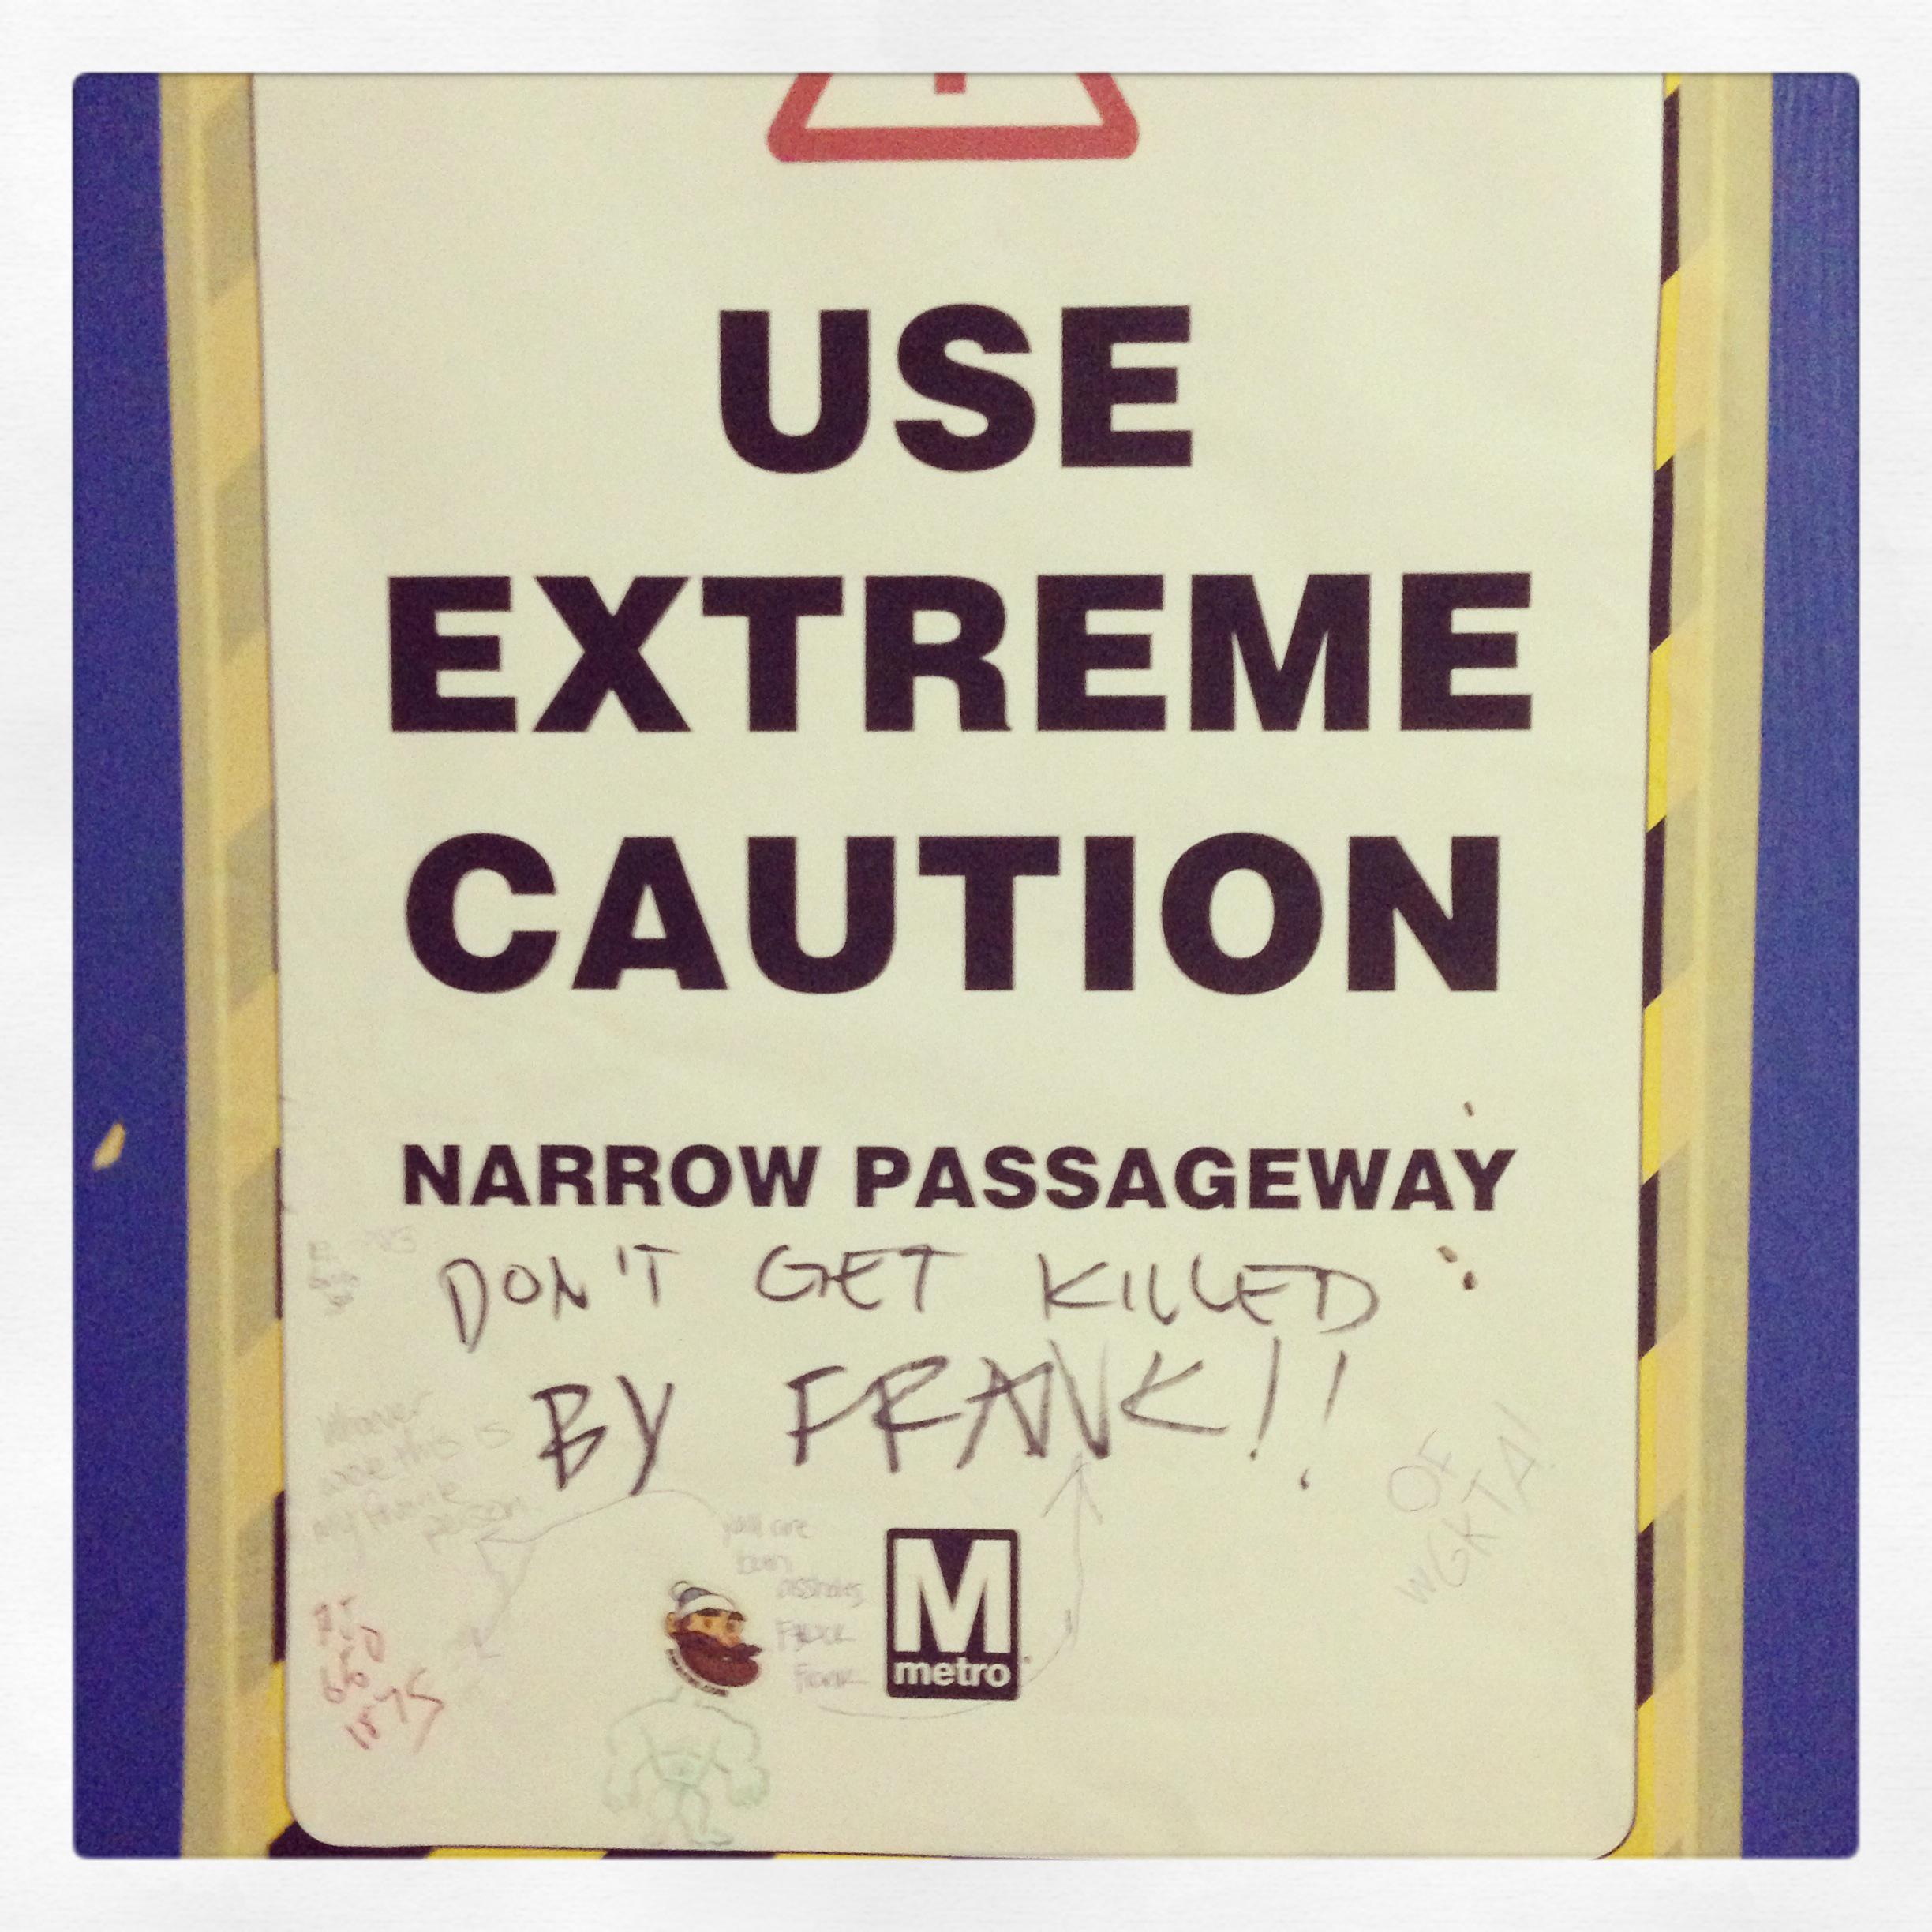 USE
EXTREME
CAUTION
NARROW PASSAGEWAY
DON'T GET KILLED
BY FRANK!!
Whoever
this is
my favorite
person
y'all are
both
assholes
Frank
OF
WGKTA!
M
metro